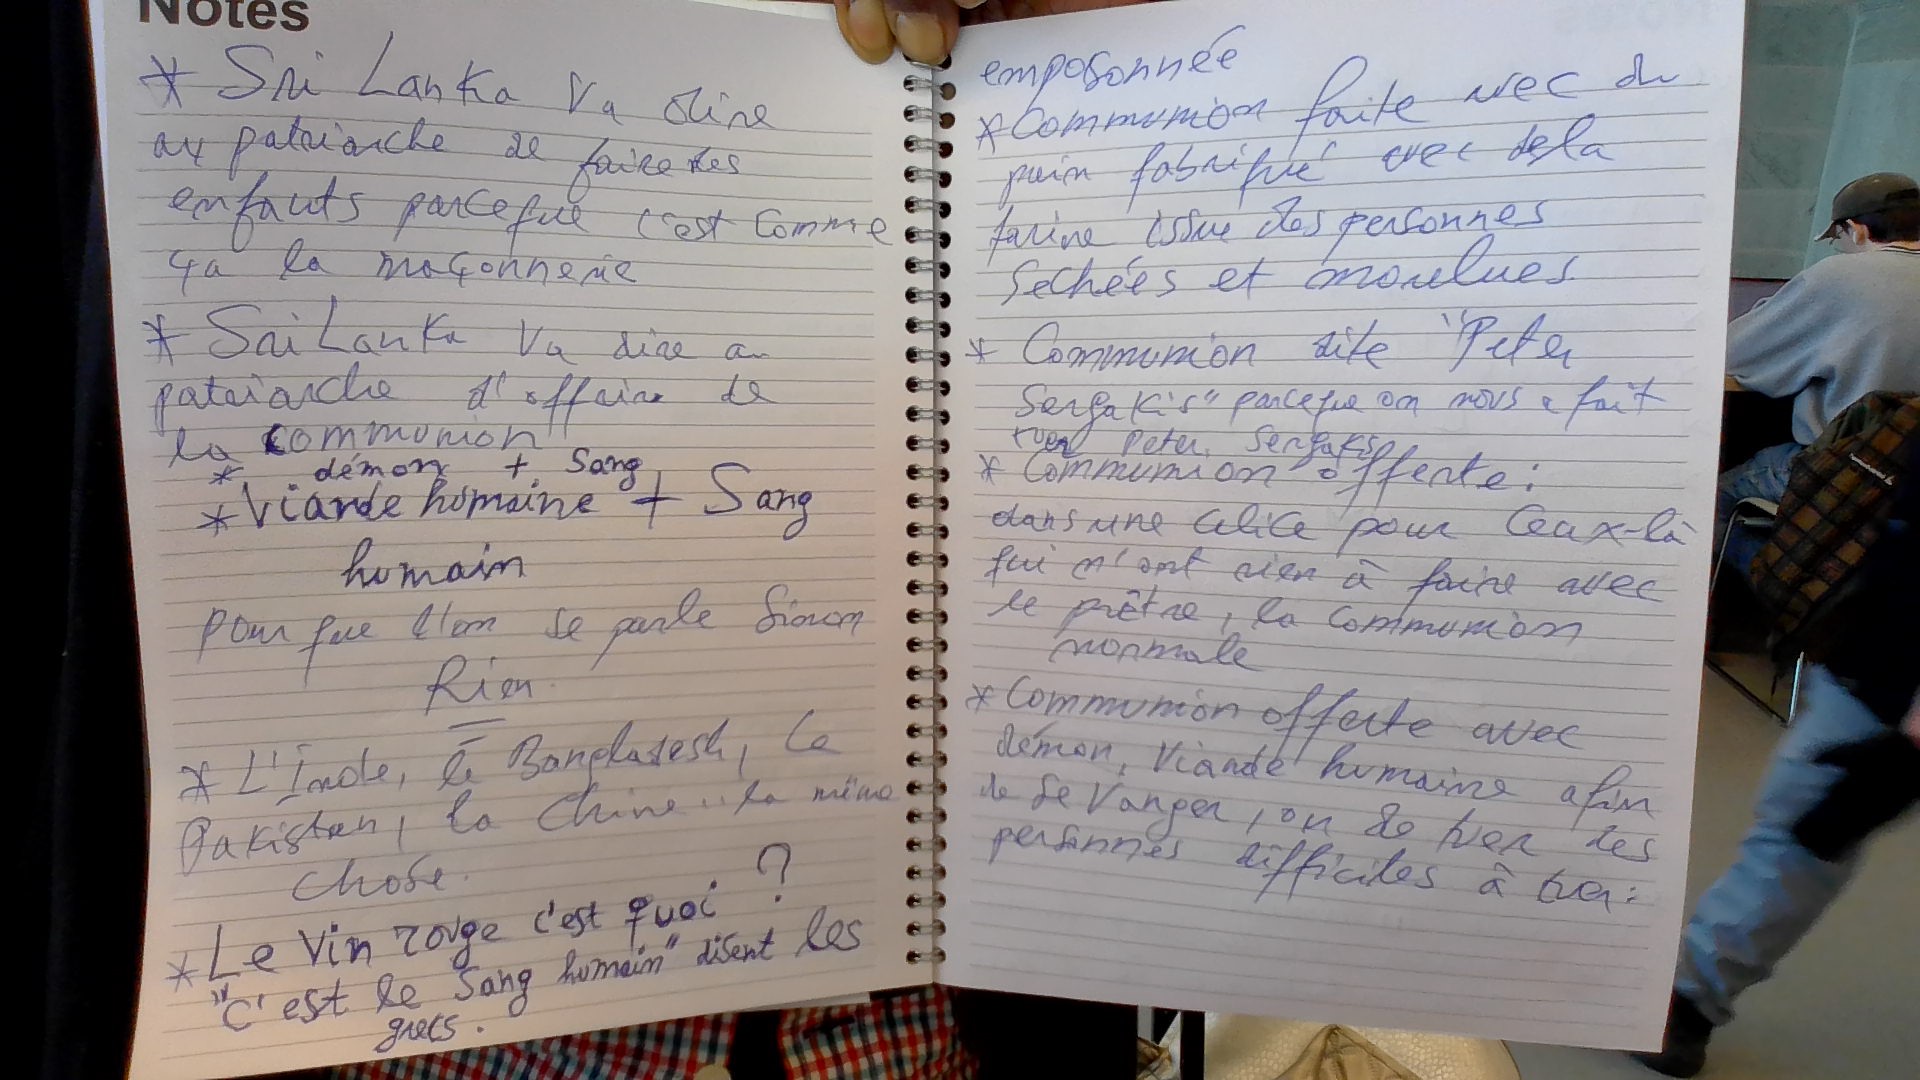 Notes
* Sri Lanka va dire
au patriarche de faire des
enfants parceque c'est comme
ça la maçonnerie
* Sri Lanka va dire au
patriarche d'offrir de
la communion
* démon + sang
* Viande humaine + Sang
humain
pour que l'on se parle sinon
Rien
* L'Inde, le Bangladesh, le
Pakistan, la Chine.. la même
chose.
* Le vin rouge c'est quoi ?
"C'est le sang humain" disent les
grecs.
emposonnée
* Communion faite avec du
pain fabriqué avec de la
farine issue des personnes
sechées et moulues
* Communion dite "Peter
Sergakis" parceque on nous a fait
tuer Peter Sergakis
* Communion offerte :
dans une calice pour ceux-là
qui n'ont rien à faire avec
le prêtre, la communion
normale
* Communion offerte avec
démon, viande humaine afin
de se vanger, ou de tuer des
personnes difficiles à tuer :